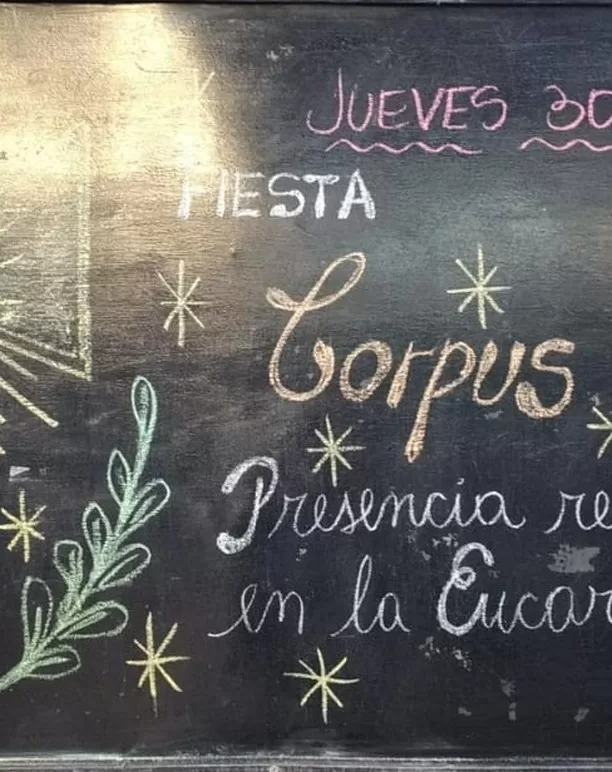 JUEVES 30
FIESTA
Corpus
Presencia re
en la Eucar